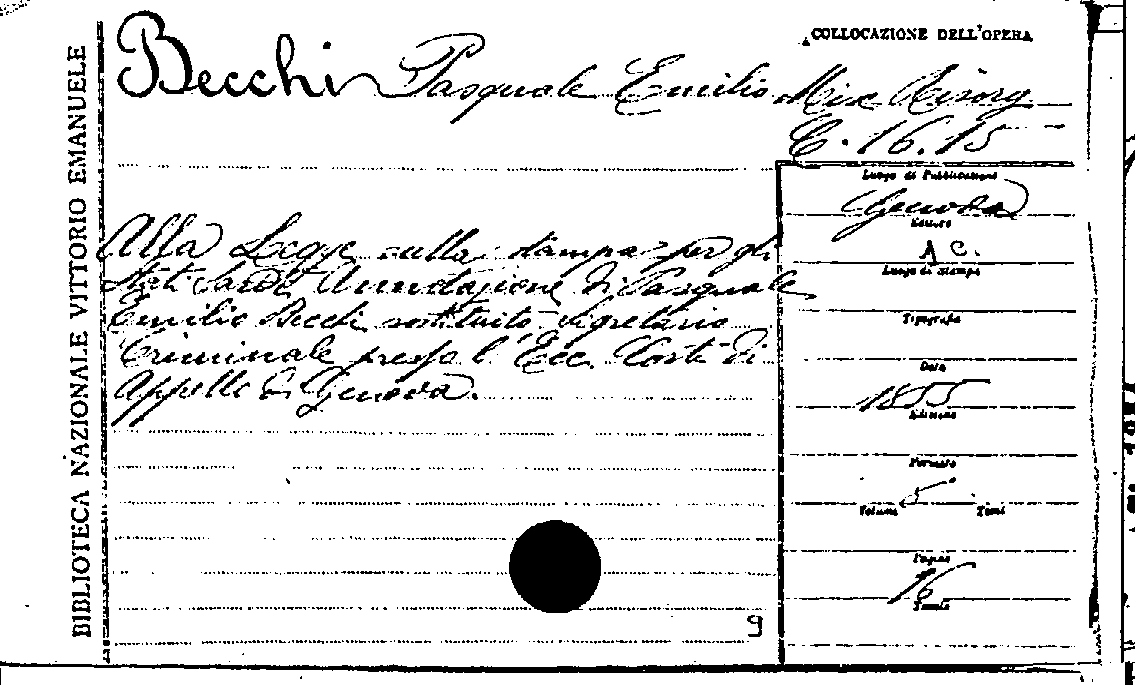 BIBLIOTECA NAZIONALE VITTORIO EMANUELE
Becchi Pasquale Emilio
COLLOCAZIONE DELL'OPERA
Misc Risorg
C. 16. 15
Alla Legge sulla stampa per gli
Stati Sardi Annotazione di Pasquale
Emilio Becchi sostituito Segretario
Criminale presso l'Ecc. Corte di
Appello di Genova.
Luogo di Pubblicazione
Genova
Editore
A C.
Luogo di stampa
Tipografia
Data
1855
Edizione
Formato
Volumi Tomi
Pagine
16
9